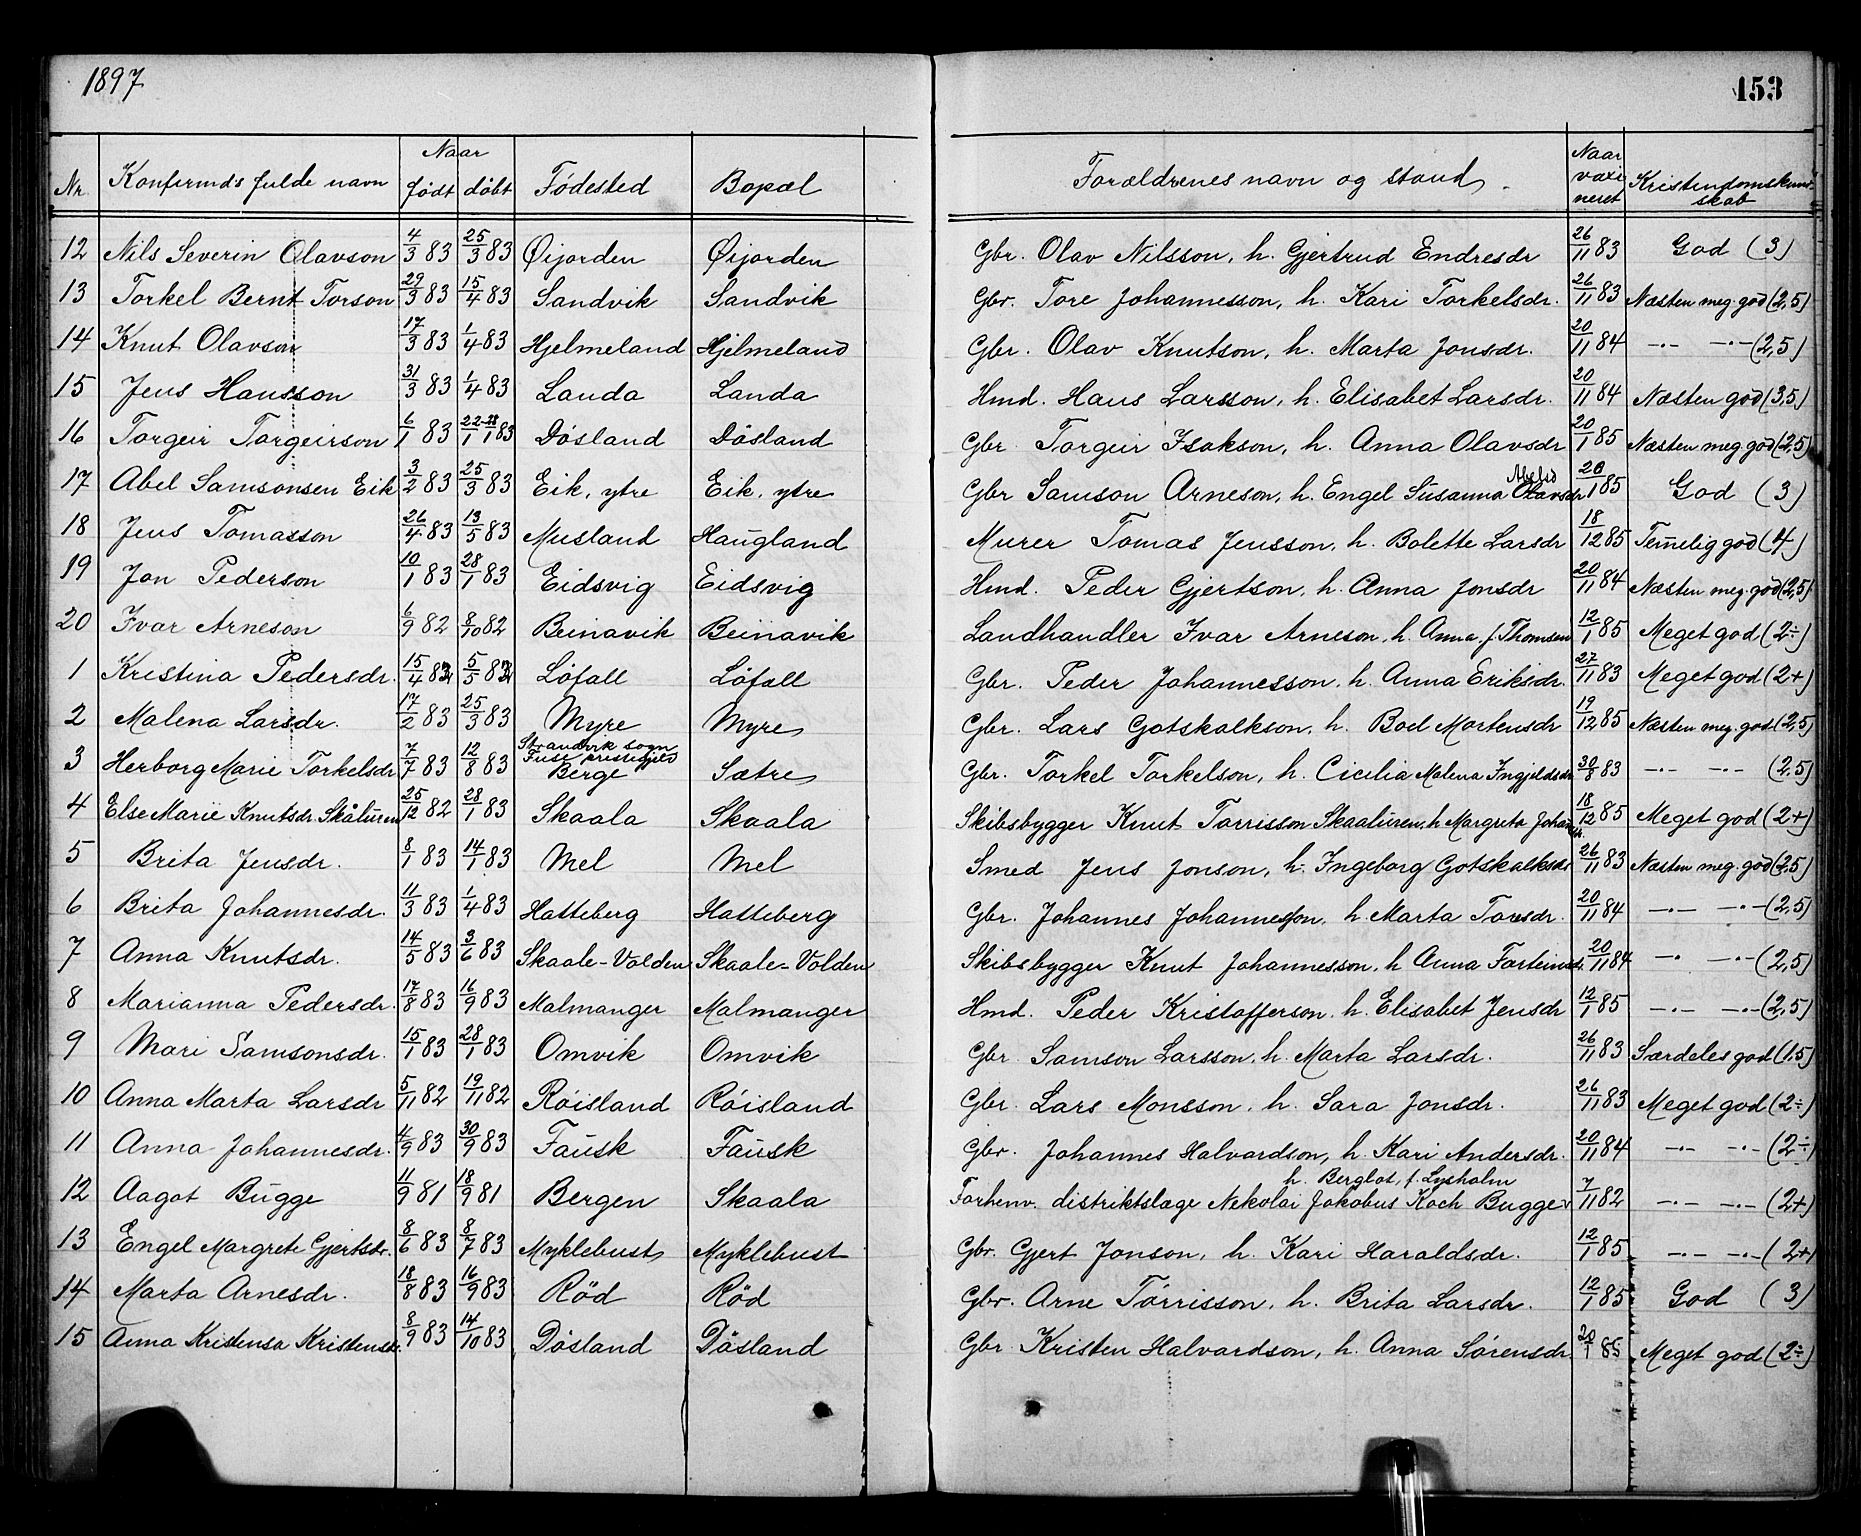 1897
153
Nr. Konfirmd's fulde navn Naar født døbt Fødested Bopæl Forældrenes navn og stand Naar vaxineret Kristendomskundskab
12 Nils Severin Olavson 4/3 83 25/3 83 Øijorden Øijorden Gbr. Olav Nilsson, h. Gjertrud Endresdr 26/11 83 God (3)
13 Torkel Bernt Torson 29/3 83 15/4 83 Sandvik Sandvik Gbr. Tore Johannesson, h. Kari Torkelsdr. 26/11 83 Næsten meg. god (2,5)
14 Knut Olavson 17/3 83 1/4 83 Hjelmeland Hjelmeland Gbr. Olav Knutson, h. Marta Jonsdr. 20/11 84 —·— —·— (2,5)
15 Jens Hansson 31/3 83 1/4 83 Landa Landa Hmd. Hans Larsson, h. Elisabet Larsdr. 20/11 84 Næsten god (3,5)
16 Torgeir Torgeirson 6/1 83 28/1 83 Døsland Døsland Gbr. Torgeir Isakson, h. Anna Olavsdr 20/1 85 Næsten meg. god (2,5)
17 Abel Samsonsen Eik 3/2 83 25/3 83 Eik, ytre Eik, ytre Gbr Samson Arneson, h. Engel Susanna Olavsdr 20/1 85 God (3)
18 Jens Tomasson 26/4 83 13/5 83 Musland Haugland Murer Tomas Jensson, h. Bolette Larsdr 18/12 85 Temelig god (4)
19 Jon Pederson 10/1 83 28/1 83 Eidsvig Eidsvig Hmd. Peder Gjertson, h. Anna Jonsdr 20/11 84 Næsten meg. god (2,5)
20 Ivar Arneson 6/9 82 8/10 82 Beinavik Beinavik Landhandler Ivar Arneson, h. Anna f. Thomsen 12/1 85 Meget god (2÷)
1 Kristina Pedersdr. 15/4 82 5/5 82 Løfall Løfall Gbr. Peder Johannesson, h. Anna Eriksdr. 27/11 83 Meget god (2+)
2 Malena Larsdr. 17/2 83 25/3 83 Myre Myre Gbr. Lars Gotskalkson, h. Bod Mortensdr 19/12 85 Næsten meg. god (2,5)
3 Herborg Marie Torkelsdr 7/7 83 12/8 83 Strandvik sogn Fuse prestegjeld Berge Sætre Gbr. Torkel Torkelson, h. Cicilia Malena Ingjeldsdr 30/8 83 —·— —·— (2,5)
4 Else Marie Knutsdr. Skåluren 25/12 82 28/1 83 Skaala Skaala Skibsbygger Knut Torrisson Skaaluren, h Margreta Johansdr. 18/12 85 Meget god (2+)
5 Brita Jensdr. 8/1 83 14/1 83 Mel Mel Smed Jens Jonson, h. Ingeborg Gotskalksdr 26/11 83 Næsten meg. god (2,5)
6 Brita Johannesdr. 11/3 83 1/4 83 Hatteberg Hatteberg Gbr. Johannes Johannesson, h. Marta Toresdr. 20/11 84 —·— —·— (2,5)
7 Anna Knutsdr. 14/5 83 3/6 83 Skaale-Volden Skaale-Volden Skibsbygger Knut Johannesson, h Anna Forteinsdr. 20/11 84 —·— —·— (2,5)
8 Marianna Pedersdr. 17/8 83 16/9 83 Malmanger Malmanger Hmd. Peder Kristofferson, h. Elisabet Jensdr 12/1 85 —·— —·— (2,5)
9 Mari Samsonsdr. 15/1 83 28/1 83 Omvik Omvik Gbr Samson Larsson, h. Marta Larsdr. 26/11 83 Særdeles god (1,5)
10 Anna Marta Larsdr 5/11 82 19/11 82 Røisland Røisland Gbr. Lars Monsson, h. Sara Jonsdr. 26/11 83 Meget god (2÷)
11 Anna Johannesdr. 4/9 83 30/9 83 Fausk Fausk Gbr. Johannes Halvardson, h. Kari Andersdr. 20/11 84 —·— —·— (2÷)
12 Aagot Bugge 11/9 81 18/9 81 Bergen Skaala Forhenv. distriktslæge Nikolai Jakobus Koch Bugge h. Berglot, f. Lysholm 7/11 82 —·— —·— (2+)
13 Engel Margrete Gjertsdr. 8/6 83 8/7 83 Myklebust Myklebust Gbr. Gjert Jonson, h. Kari Haraldsdr. 12/1 85 —·— —·— (2+)
14 Marta Arnesdr. 18/8 83 16/9 83 Rød Rød Gbr. Arne Torrisson, h. Brita Larsdr. 12/1 85 God (3)
15 Anna Kristensa Kristensdr. 8/9 83 14/10 83 Døsland Døsland Gbr Kristen Halvardson, h. Anna Sørensdr. 20/1 85 Meget god (2÷)